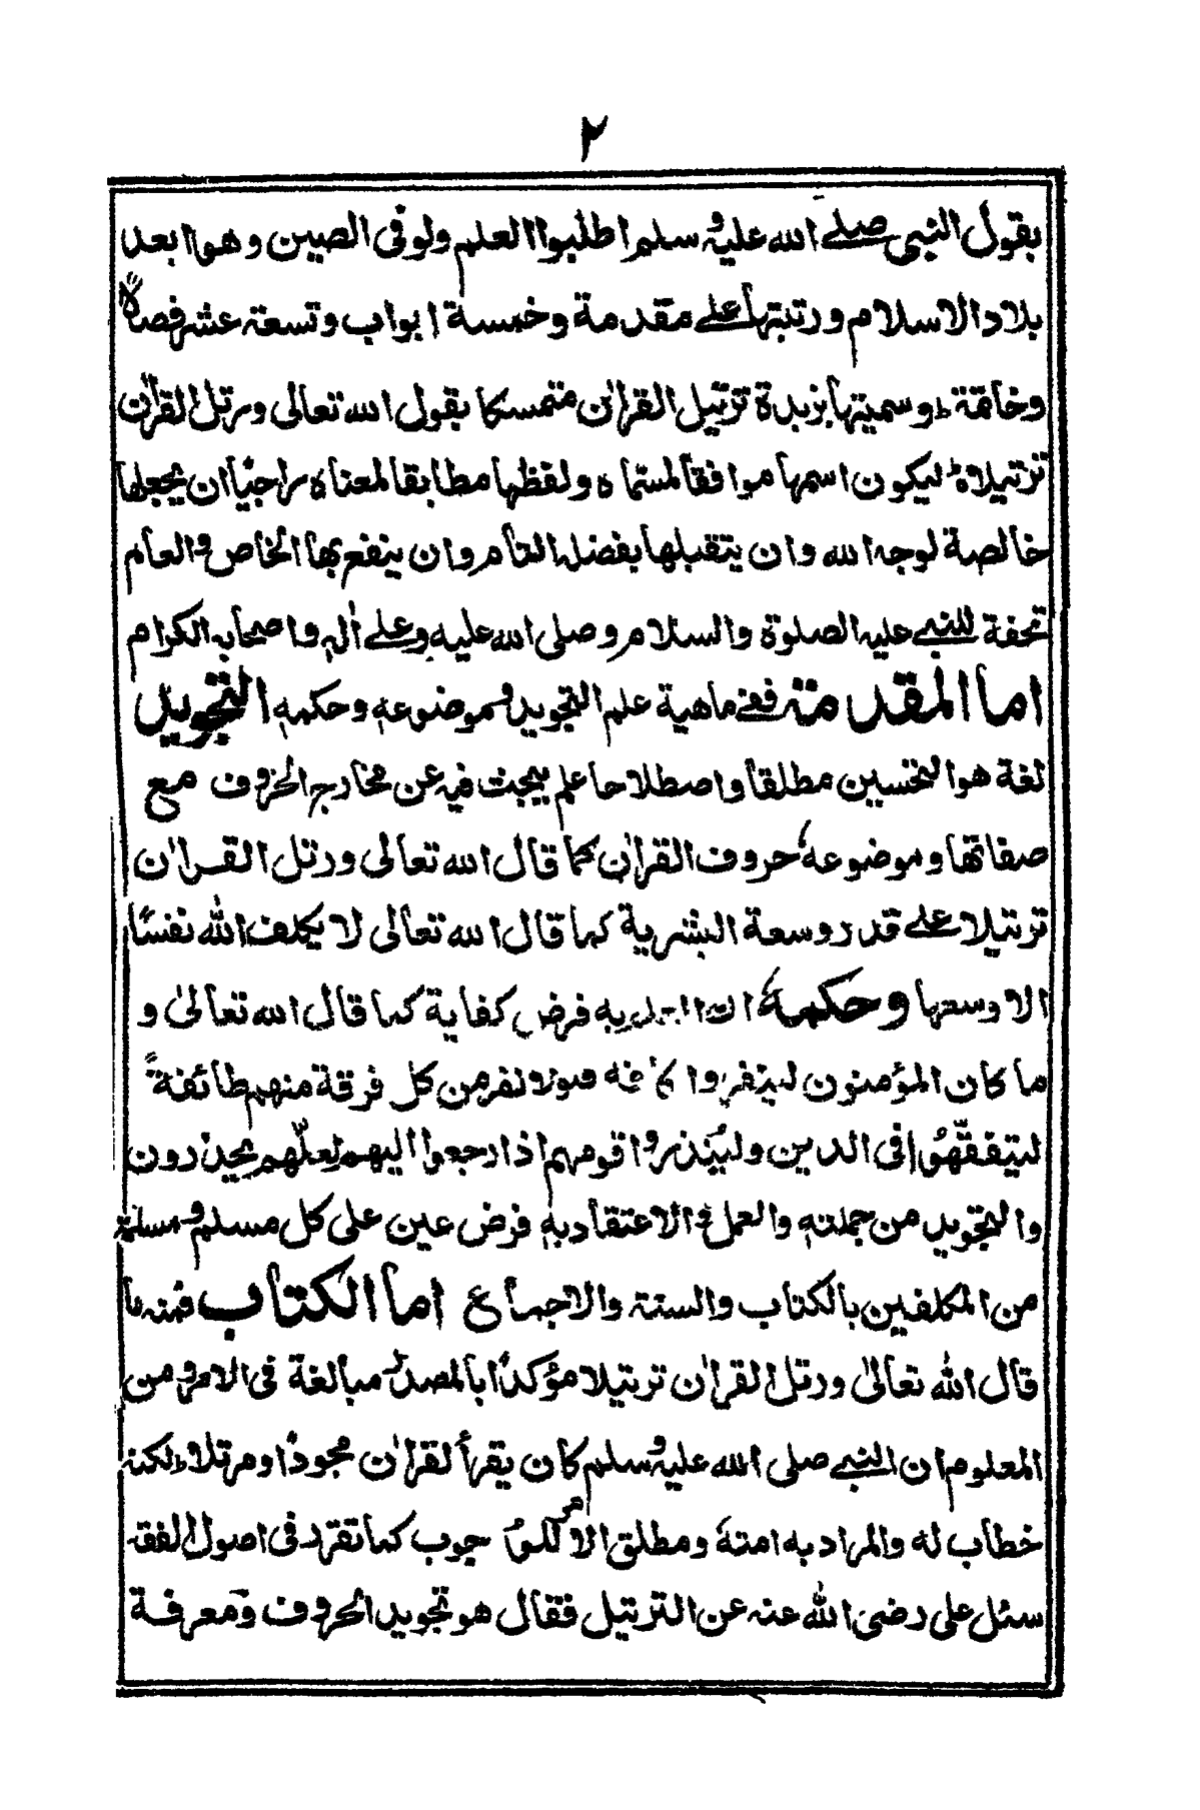 ٢
بقول النبی صلے الله علیه و سلم اطلبوا العلم ولو فی الصین وهو ابعد
بلاد الاسلام ورتبتها علے مقدمة وخمسة ابواب وتسعة عشر فصلاً
وخاتمة وسمیتها بزبدة ترتیل القراٰن متمسکا بقول الله تعالی ورتل القراٰن
ترتیلا لیکون اسمها موافقا لمسماه ولفظها مطابقا لمعناه راجیًا ان یجعلها
خالصة لوجه الله وان یتقبلها بفضله التام وان ینفع بها الخاص والعام
تحفة للنبے علیه الصلوة والسلام وصلی الله علیه وعلے اٰله واصحابه الکرام
اما المقدمة ففے ماهیة علم التجوید وموضوعه وحکمه التجوید
لغة هو التحسین مطلقا واصطلاحا علم یبحث فیه عن مخارج الحروف مع
صفاتها وموضوعه حروف القراٰن کما قال الله تعالی ورتل القراٰن
ترتیلا علے قدر وسعة البشریة کما قال الله تعالی لا یکلف الله نفسًا
الا وسعها وحکمه به فرض کفایة کما قال الله تعالیٰ و
ما کان المؤمنون لینفروا کافة فلولا نفر من کل فرقة منهم طائفةً
لیتفقّهُوا فی الدین ولیُنذروا قومهم اذا رجعوا الیهم لعلّهم یحذرون
والتجوید من جملته والعمل والاعتقاد به فرض عین علی کل مسلم ومسلمة
من المکلفین بالکتاب والسنة والاجماع اما الکتاب فمنه ما
قال الله تعالیٰ ورتل القراٰن ترتیلا مؤکدًا بالمصدر مبالغة فی الامر ومن
المعلوم ان النبے صلی الله علیه وسلم کان یقرأ القراٰن مجودًا ومرتلا ولکنه
خطاب له والمراد به امته ومطلق الامر للوجوب کما تقرر فی اصول الفقه
سئل علی رضی الله عنه عن الترتیل فقال هو تجوید الحروف ومعرفة